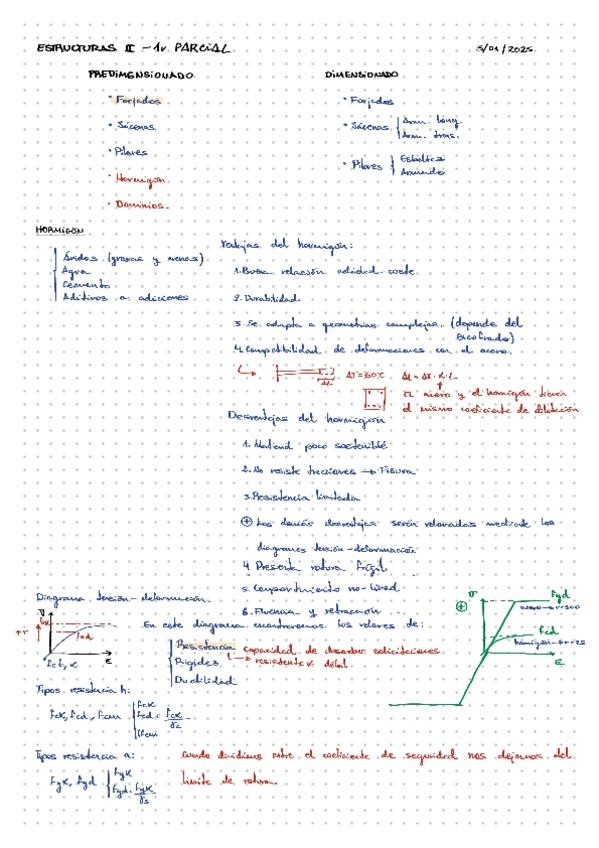 ESTRUCTURAS II - 1r PARCIAL
PREDIMENSIONADO
DIMENSIONADO
· Forjados
· Jácenas
· Pilares
· Hormigón
· Dominios.
· Forjados
· Jácenas
Arm. long.
Arm. trans.
· Pilares
Esbeltez
Armado
HORMIGÓN
Áridos (gravas y arenas)
Agua
Cemento
Aditivos o adiciones
Ventajas del hormigón:
1. Buena relación calidad-coste
2. Durabilidad
3. Se adapta a geometrías complejas. (depende del
encofrado)
4. Compatibilidad de deformaciones con el acero.
ΔL
ΔT=30°C
ΔL = ΔT · α · L
El acero y el hormigón tienen
el mismo coeficiente de dilatación
Desventajas del hormigón
1. Material poco sostenible
2. No resiste tracciones → Fisura
3. Resistencia limitada
⊕ Las demás desventajas serán valoradas mediante los
diagramas tensión-deformación
4. Presenta rotura frágil
5. Comportamiento no-lineal
6. Fluencia y retracción
Diagrama tensión-deformación
En este diagrama encontraremos los valores de:
Resistencia capacidad de absorber solicitaciones
↳ resistente v. débil
Rigidez
Ductilidad
σ
fcd
ε
⊕
σ
fyd
fcd
ε
Tipos resistencia h:
fck, fcd, fcm
fck
fcd = fck/γc
fcm
Tipos resistencia a:
fyk, fyd
fyk
fyd = fyk/γs
cuando dividimos entre el coeficiente de seguridad nos alejamos del
límite de rotura.